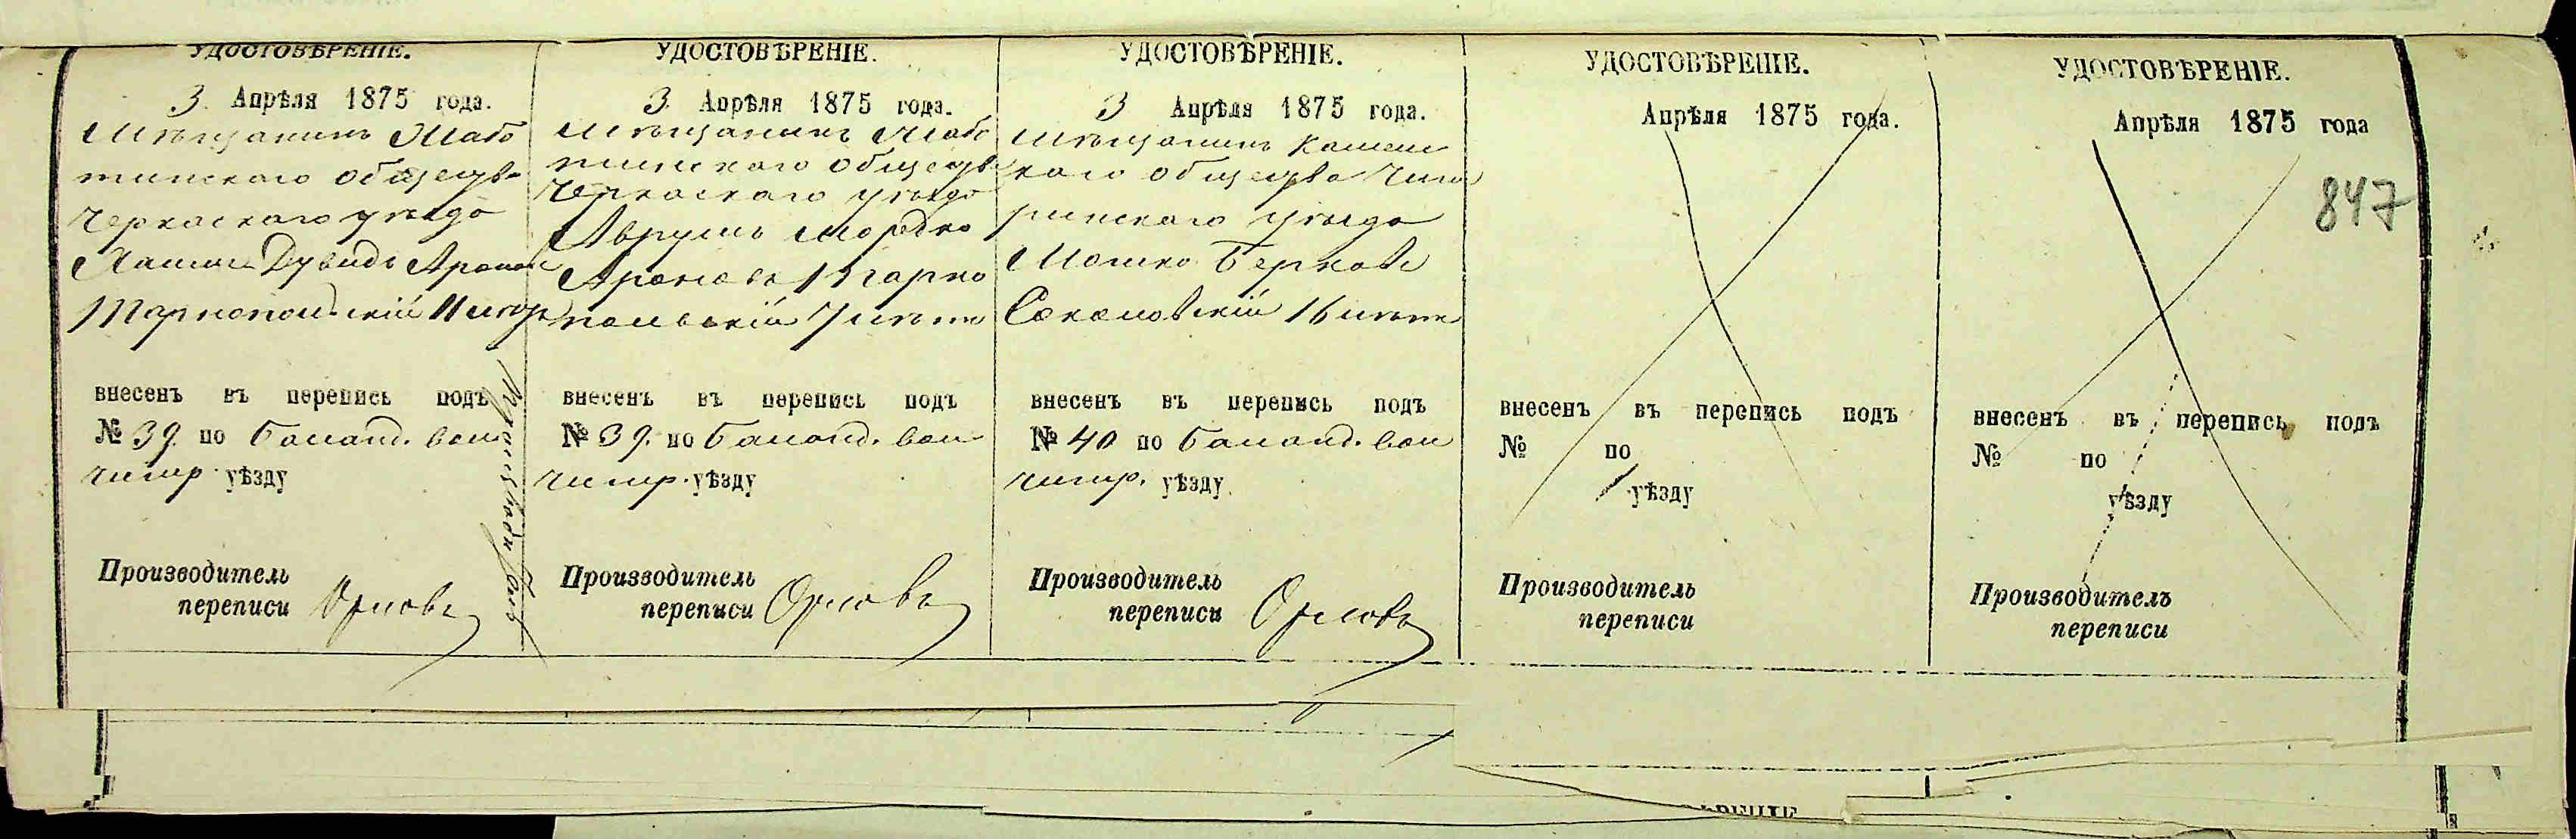 УДОСТОВѢРЕНІЕ.
3. Апрѣля 1875 года.
Мѣщанинъ Мато
тинскаго обществ
Черкаскаго уѣзда
Дувидъ Аронов
Тарнопольскій 11 лѣтъ
внесенъ въ перепись подъ
№ 39. по Баланд. вол
чигир. уѣзду
Производитель
переписи Орловъ
УДОСТОВѢРЕНІЕ.
3. Апрѣля 1875 года.
Мѣщанинъ
тинскаго обществ
Черкаскаго уѣзда
Аврумъ Мордко
Ароновъ Тарно
польскій 7 лѣтъ
внесенъ въ перепись подъ
№ 39. по Баланд. вол
чигир. уѣзду
Производитель
переписи Орловъ
УДОСТОВѢРЕНІЕ.
3 Апрѣля 1875 года.
Мѣщанинъ Камен
каго общества Чиги
ринскаго уѣзда
Мошко Берковъ
Соколовскій 16 лѣтъ
внесенъ въ перепись подъ
№ 40 по Баланд. вол
чигир. уѣзду
Производитель
переписи Орловъ
УДОСТОВѢРЕНІЕ.
Апрѣля 1875 года.
внесенъ въ перепись подъ
№ по
уѣзду
Производитель
переписи
УДОСТОВѢРЕНІЕ.
Апрѣля 1875 года
847
внесенъ въ перепись подъ
№ по
уѣзду
Производитель
переписи